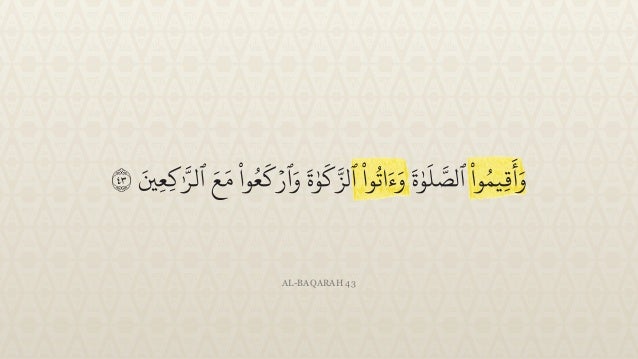 وَأَقِيمُوا۟ ٱلصَّلَوٰةَ وَءَاتُوا۟ ٱلزَّكَوٰةَ وَٱرْكَعُوا۟ مَعَ ٱلرَّٰكِعِينَ ٤٣
AL-BAQARAH 43